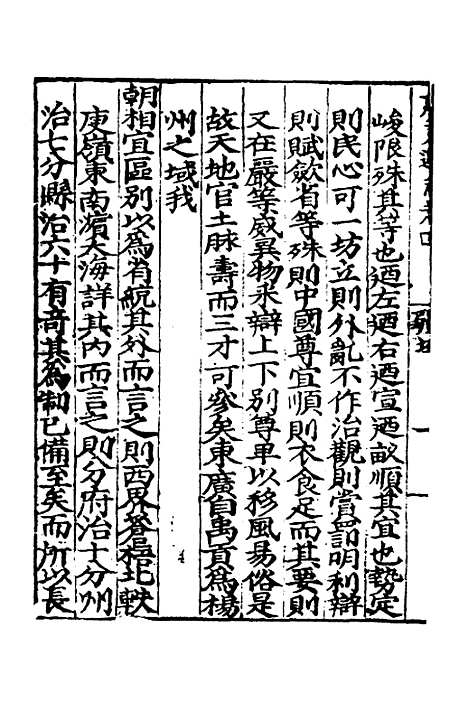 峻限殊其等也廼左廼右廼宣廼畝順其宜也勢定
則民心可一坊立則外亂不作治觀則賞罰明利辯
則賦斂省等殊則中國尊宜順則衣食足而其要則
又在嚴等威異物采辯上下别尊卑以移風易俗是
故天地官土脉壽而三才可參矣東廣自禹貢為楊
州之域我
朝相宜區别以為省統其外而言之則西界蒼梧北軼
庾嶺東南濵大海詳其内而言之則分府治十分州
治七分縣治六十有竒其為制已備至矣而所以長